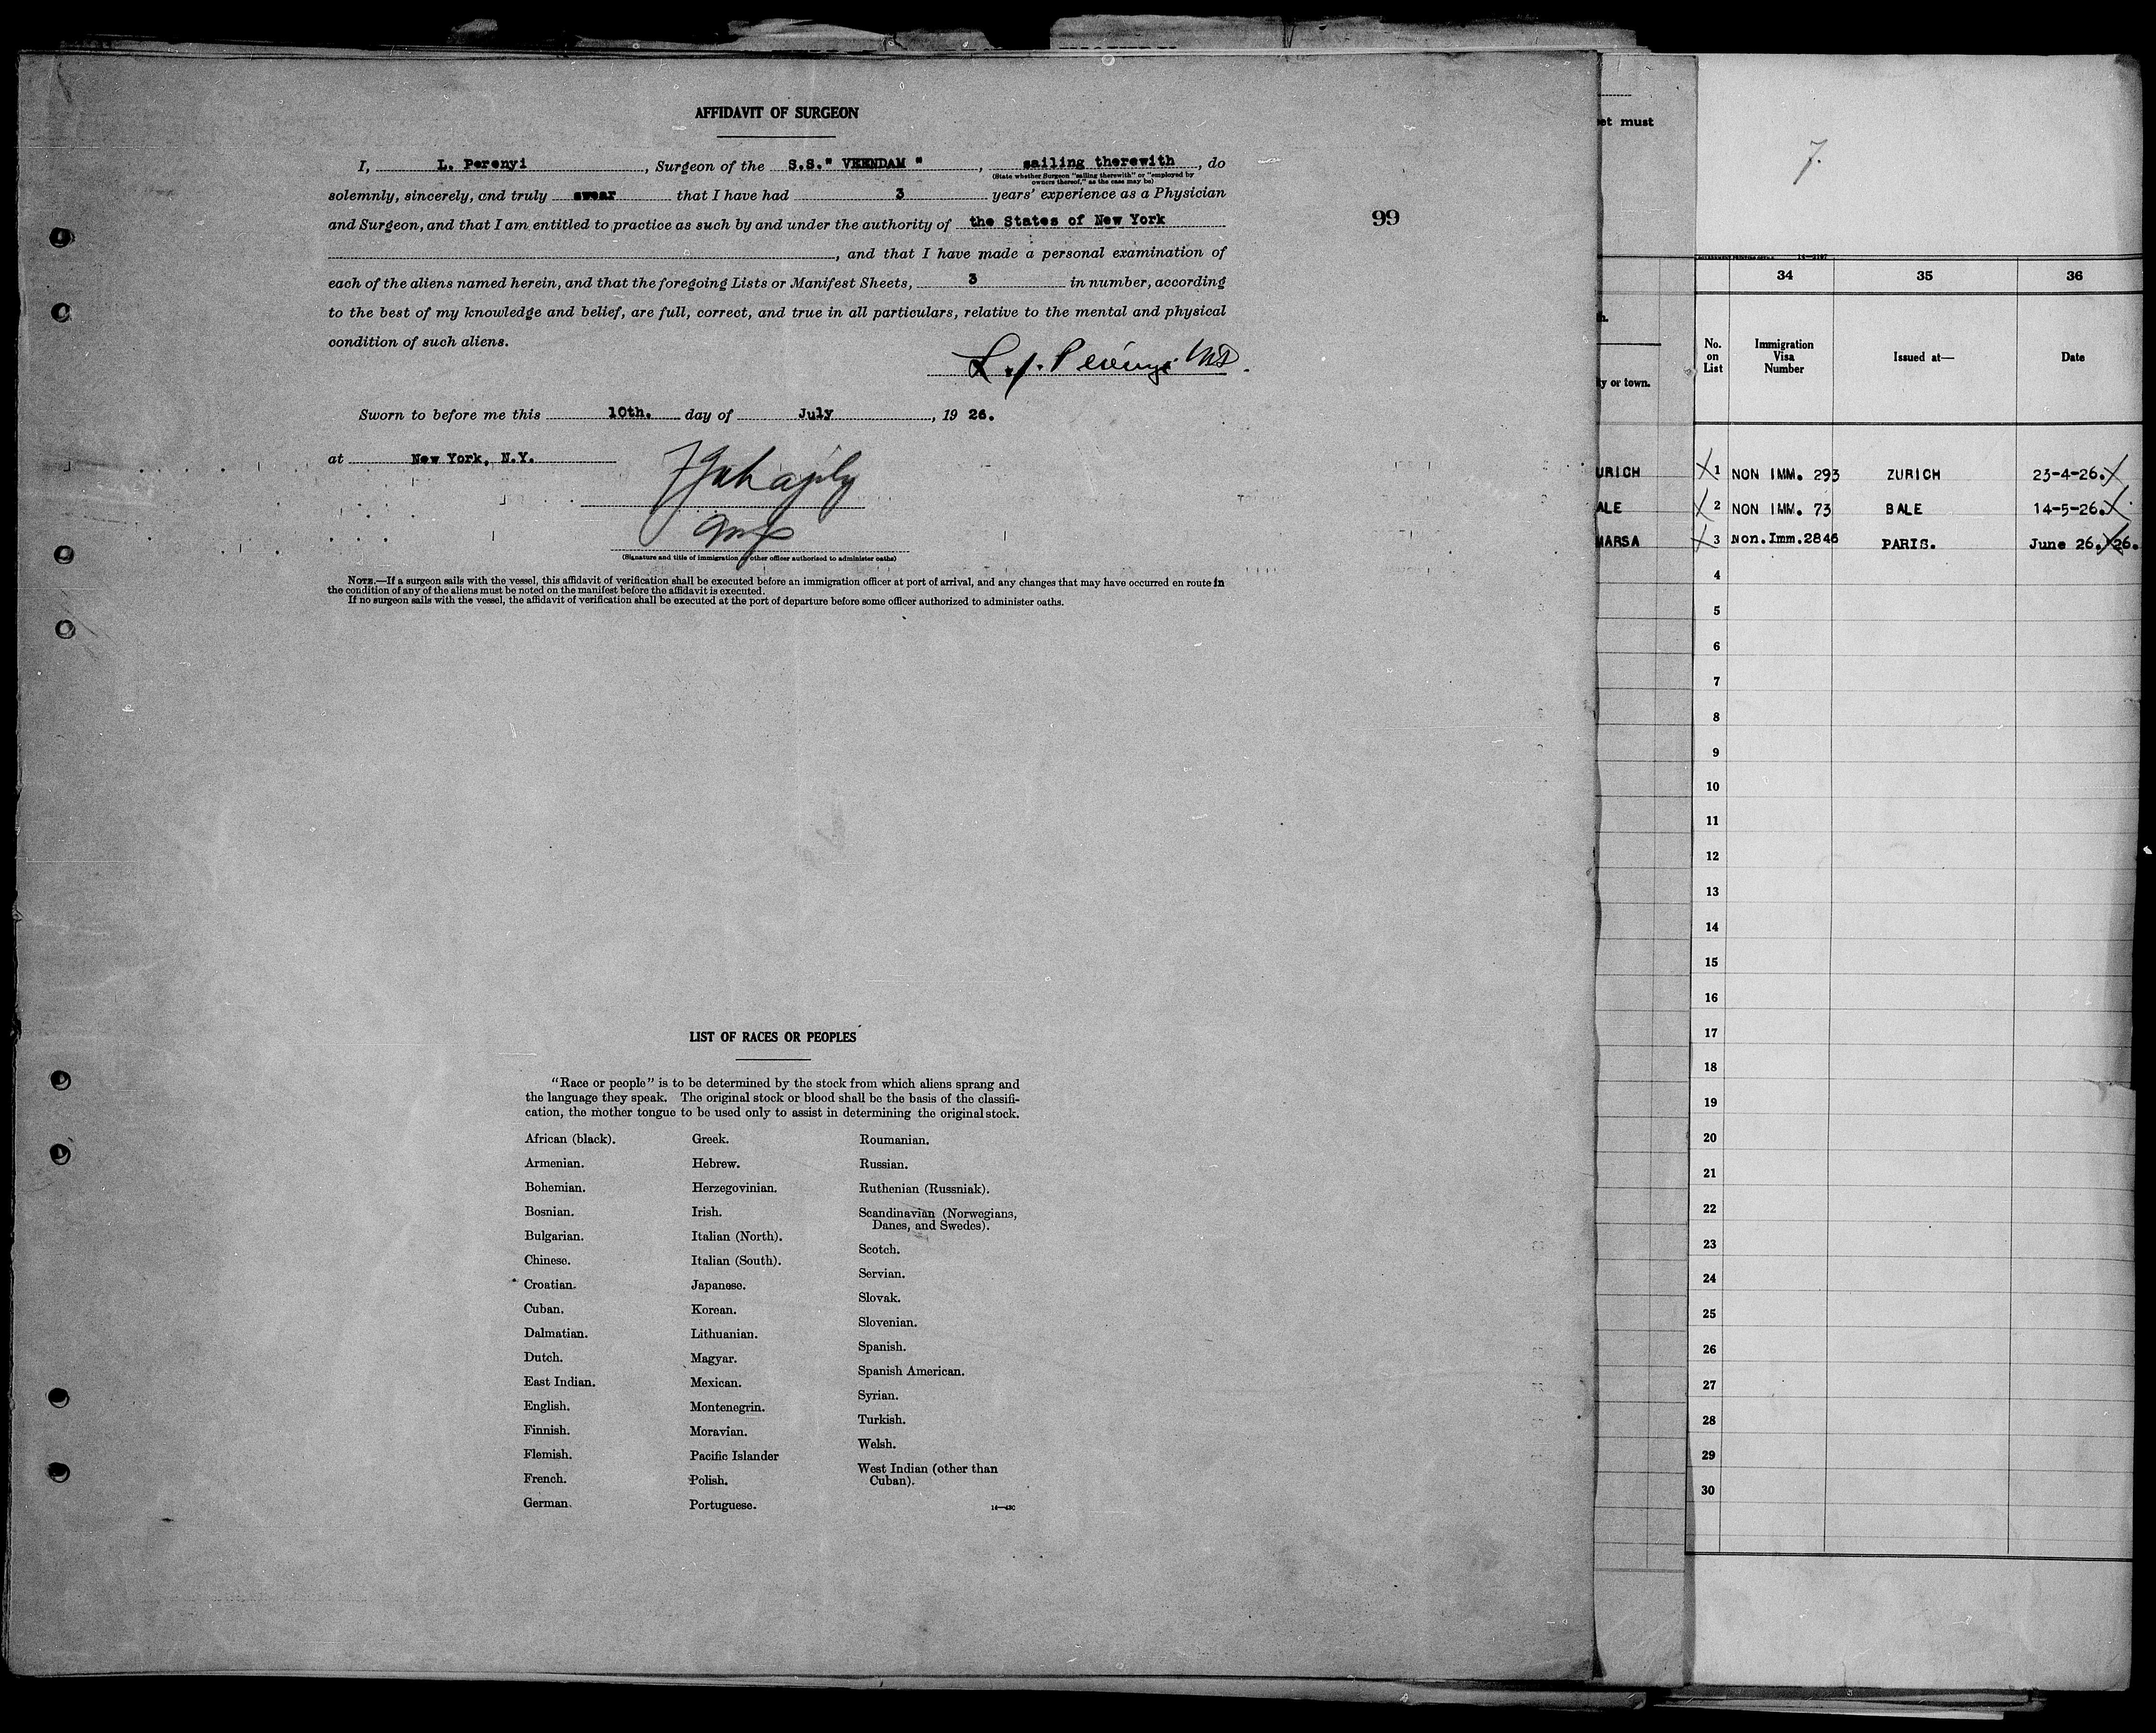 AFFIDAVIT OF SURGEON
I, L. Perenyi, Surgeon of the S.S." VEENDAM ", sailing therewith, do
(State whether Surgeon "sailing therewith" or "employed by
owners thereof," as the case may be)
solemnly, sincerely, and truly swear that I have had 3 years' experience as a Physician
and Surgeon, and that I am entitled to practice as such by and under the authority of the States of New York
, and that I have made a personal examination of
each of the aliens named herein, and that the foregoing Lists or Manifest Sheets, 3 in number, according
to the best of my knowledge and belief, are full, correct, and true in all particulars, relative to the mental and physical
condition of such aliens.
L. J. Perenyi MD.
Sworn to before me this 10th. day of July, 19 26.
at New York, N.Y.
(Signature and title of immigration or other officer authorized to administer oaths)
NOTE.—If a surgeon sails with the vessel, this affidavit of verification shall be executed before an immigration officer at port of arrival, and any changes that may have occurred en route in
the condition of any of the aliens must be noted on the manifest before the affidavit is executed.
If no surgeon sails with the vessel, the affidavit of verification shall be executed at the port of departure before some officer authorized to administer oaths.
99
LIST OF RACES OR PEOPLES
"Race or people" is to be determined by the stock from which aliens sprang and
the language they speak. The original stock or blood shall be the basis of the classifi-
cation, the mother tongue to be used only to assist in determining the original stock.
African (black).
Armenian.
Bohemian.
Bosnian.
Bulgarian.
Chinese.
Croatian.
Cuban.
Dalmatian.
Dutch.
East Indian.
English.
Finnish.
Flemish.
French.
German.
Greek.
Hebrew.
Herzegovinian.
Irish.
Italian (North).
Italian (South).
Japanese.
Korean.
Lithuanian.
Magyar.
Mexican.
Montenegrin.
Moravian.
Pacific Islander
Polish.
Portuguese.
Roumanian.
Russian.
Ruthenian (Russniak).
Scandinavian (Norwegians,
Danes, and Swedes).
Scotch.
Servian.
Slovak.
Slovenian.
Spanish.
Spanish American.
Syrian.
Turkish.
Welsh.
West Indian (other than
Cuban).
must
y or town.
URICH
ALE
MARSA
7.
34 35 36
No. on List Immigration Visa Number Issued at— Date
X 1 NON IMM. 293 ZURICH 23-4-26. X
X 2 NON IMM. 73 BALE 14-5-26. X
X 3 Non.Imm.2846 PARIS. June 26. X 26.
4
5
6
7
8
9
10
11
12
13
14
15
16
17
18
19
20
21
22
23
24
25
26
27
28
29
30